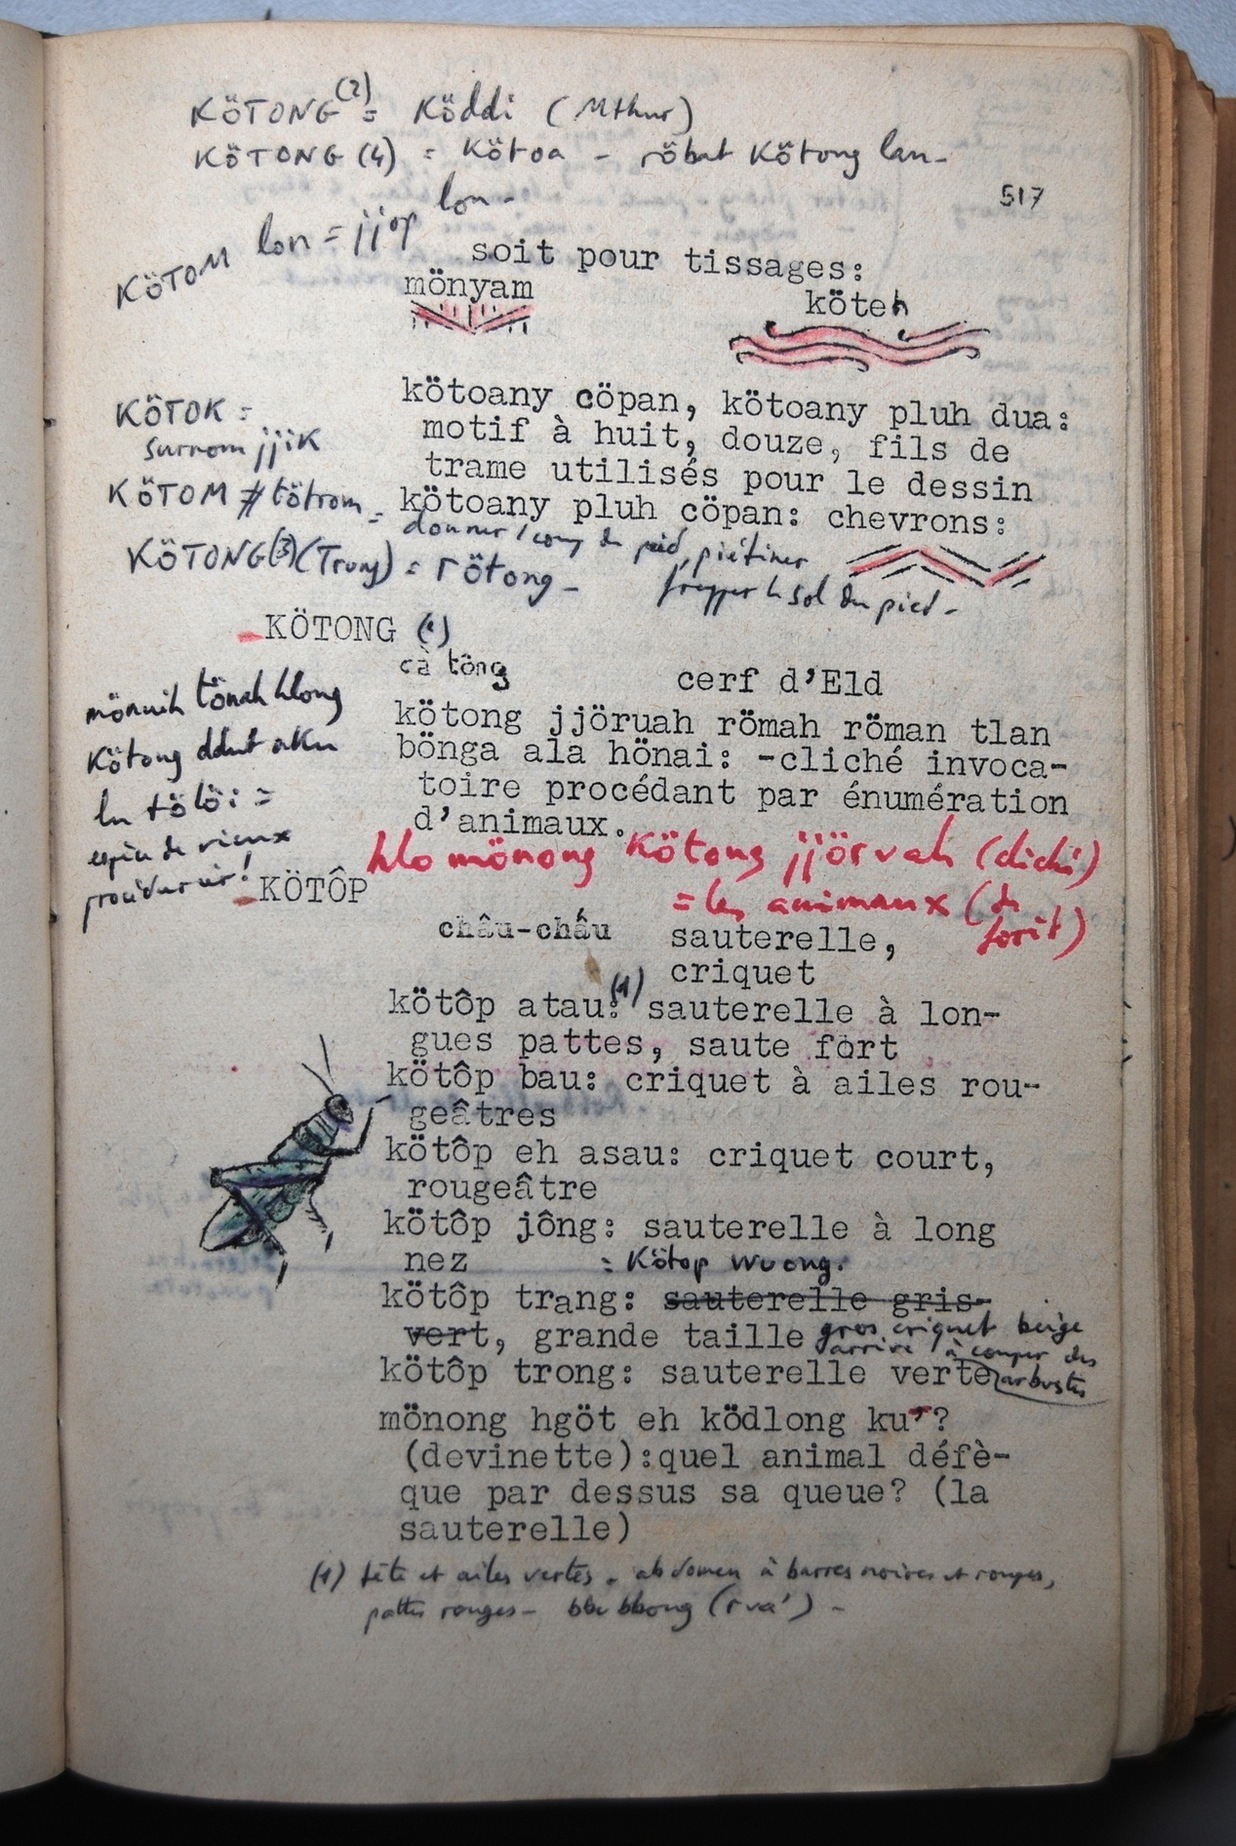 KÖTONG (2) = Köddi (Mthur)
KÖTONG (4) = Kötoa - röbat Kötong lan-
lon-
517
KÖTOM lon = jjöp
soit pour tissages:
mönyam
köteh
kötoany cöpan, kötoany pluh dua:
motif à huit, douze, fils de
trame utilisés pour le dessin
kötoany pluh cöpan: chevrons:
KÖTOK =
surnom jjiK
KÖTOM # tötrom =
donner / coup de pied, piétiner
frapper le sol du pied -
KÖTONG (3) (Trung) = rötong -
KÖTONG (1)
cà tông
cerf d'Eld
kötong jjöruah römah röman tlan
bönga ala hönai: -cliché invoca-
toire procédant par énumération
d'animaux.
mönuih tönah hlong
Kötong ddut aku
lu tölöi =
espèce de vieux
procédurier!
hlo mönong Kötong jjörvah (cliché)
= les animaux (de
forêt)
KÖTÔP
châu-chấu
sauterelle,
criquet
kötôp atau: (1) sauterelle à lon-
gues pattes, saute fort
kötôp bau: criquet à ailes rou-
geâtres
kötôp eh asau: criquet court,
rougeâtre
kötôp jông: sauterelle à long
nez = Kötop wuong.
kötôp trang: sauterelle gris-
vert, grande taille gros criquet beige
arrive à couper des
arbustes
kötôp trong: sauterelle verte
mönong hgöt eh ködlong ku'?
(devinette):quel animal défè-
que par dessus sa queue? (la
sauterelle)
(1) tête et ailes vertes. abdomen à barres noires et rouges,
pattes rouges - bbe bbong (rva') -